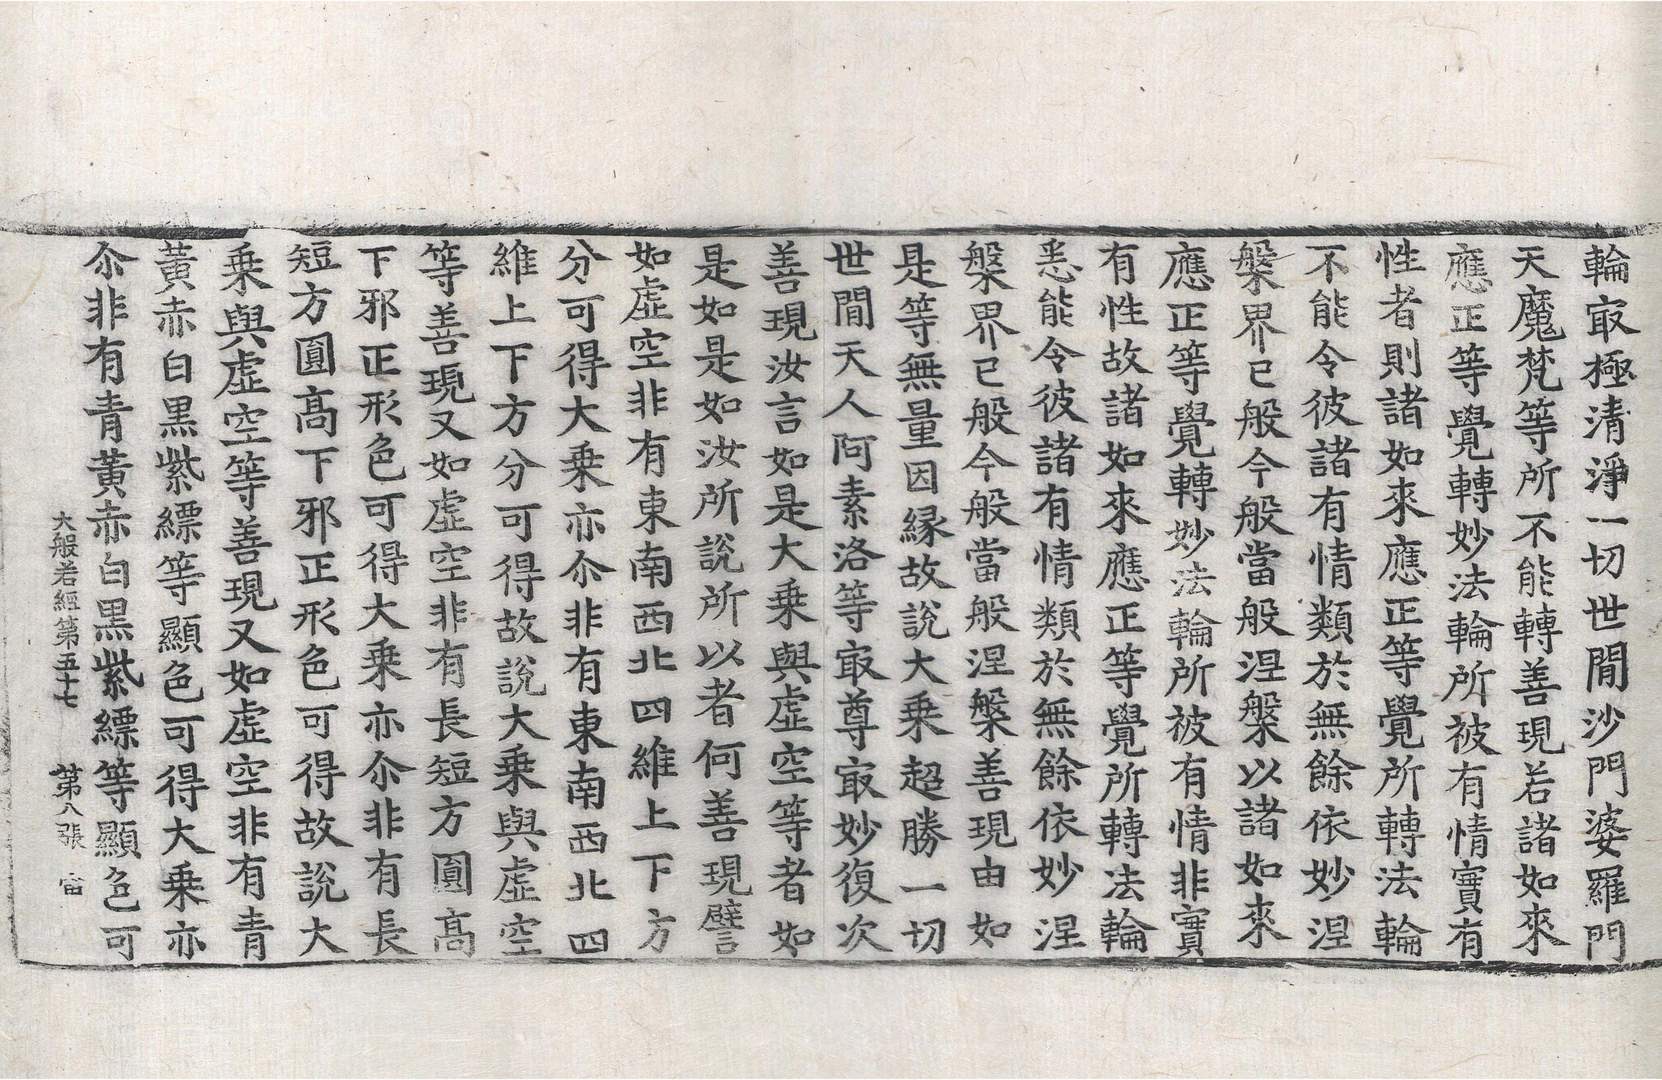 輪㝡極清淨一切世閒沙門婆羅門
天魔梵等所不能轉善現若諸如來
應正等覺轉妙法輪所被有情實有
性者則諸如來應正等覺所轉法輪
不能令彼諸有情類於無餘依妙涅
槃界已般今般當般涅槃以諸如來
應正等覺轉妙法輪所被有情非實
有性故諸如來應正等覺所轉法輪
悉能令彼諸有情類於無餘依妙涅
槃界已般今般當般涅槃善現由如
是等無量因緣故說大乗超勝一切
世閒天人阿素洛等㝡尊㝡妙復次
善現汝言如是大乗與虛空等者如
是如是如汝所說所以者何善現譬
如虛空非有東南西北四維上下方
分可得大乗亦尒非有東南西北四
維上下方分可得故說大乗與虛空
等善現又如虛空非有長短方圓髙
下邪正形色可得大乗亦尒非有長
短方圓髙下邪正形色可得故說大
乗與虛空等善現又如虛空非有青
黃赤白黑紫縹等顯色可得大乗亦
尒非有青黃赤白黑紫縹等顯色可
大般若經第五十七 第八張 宙